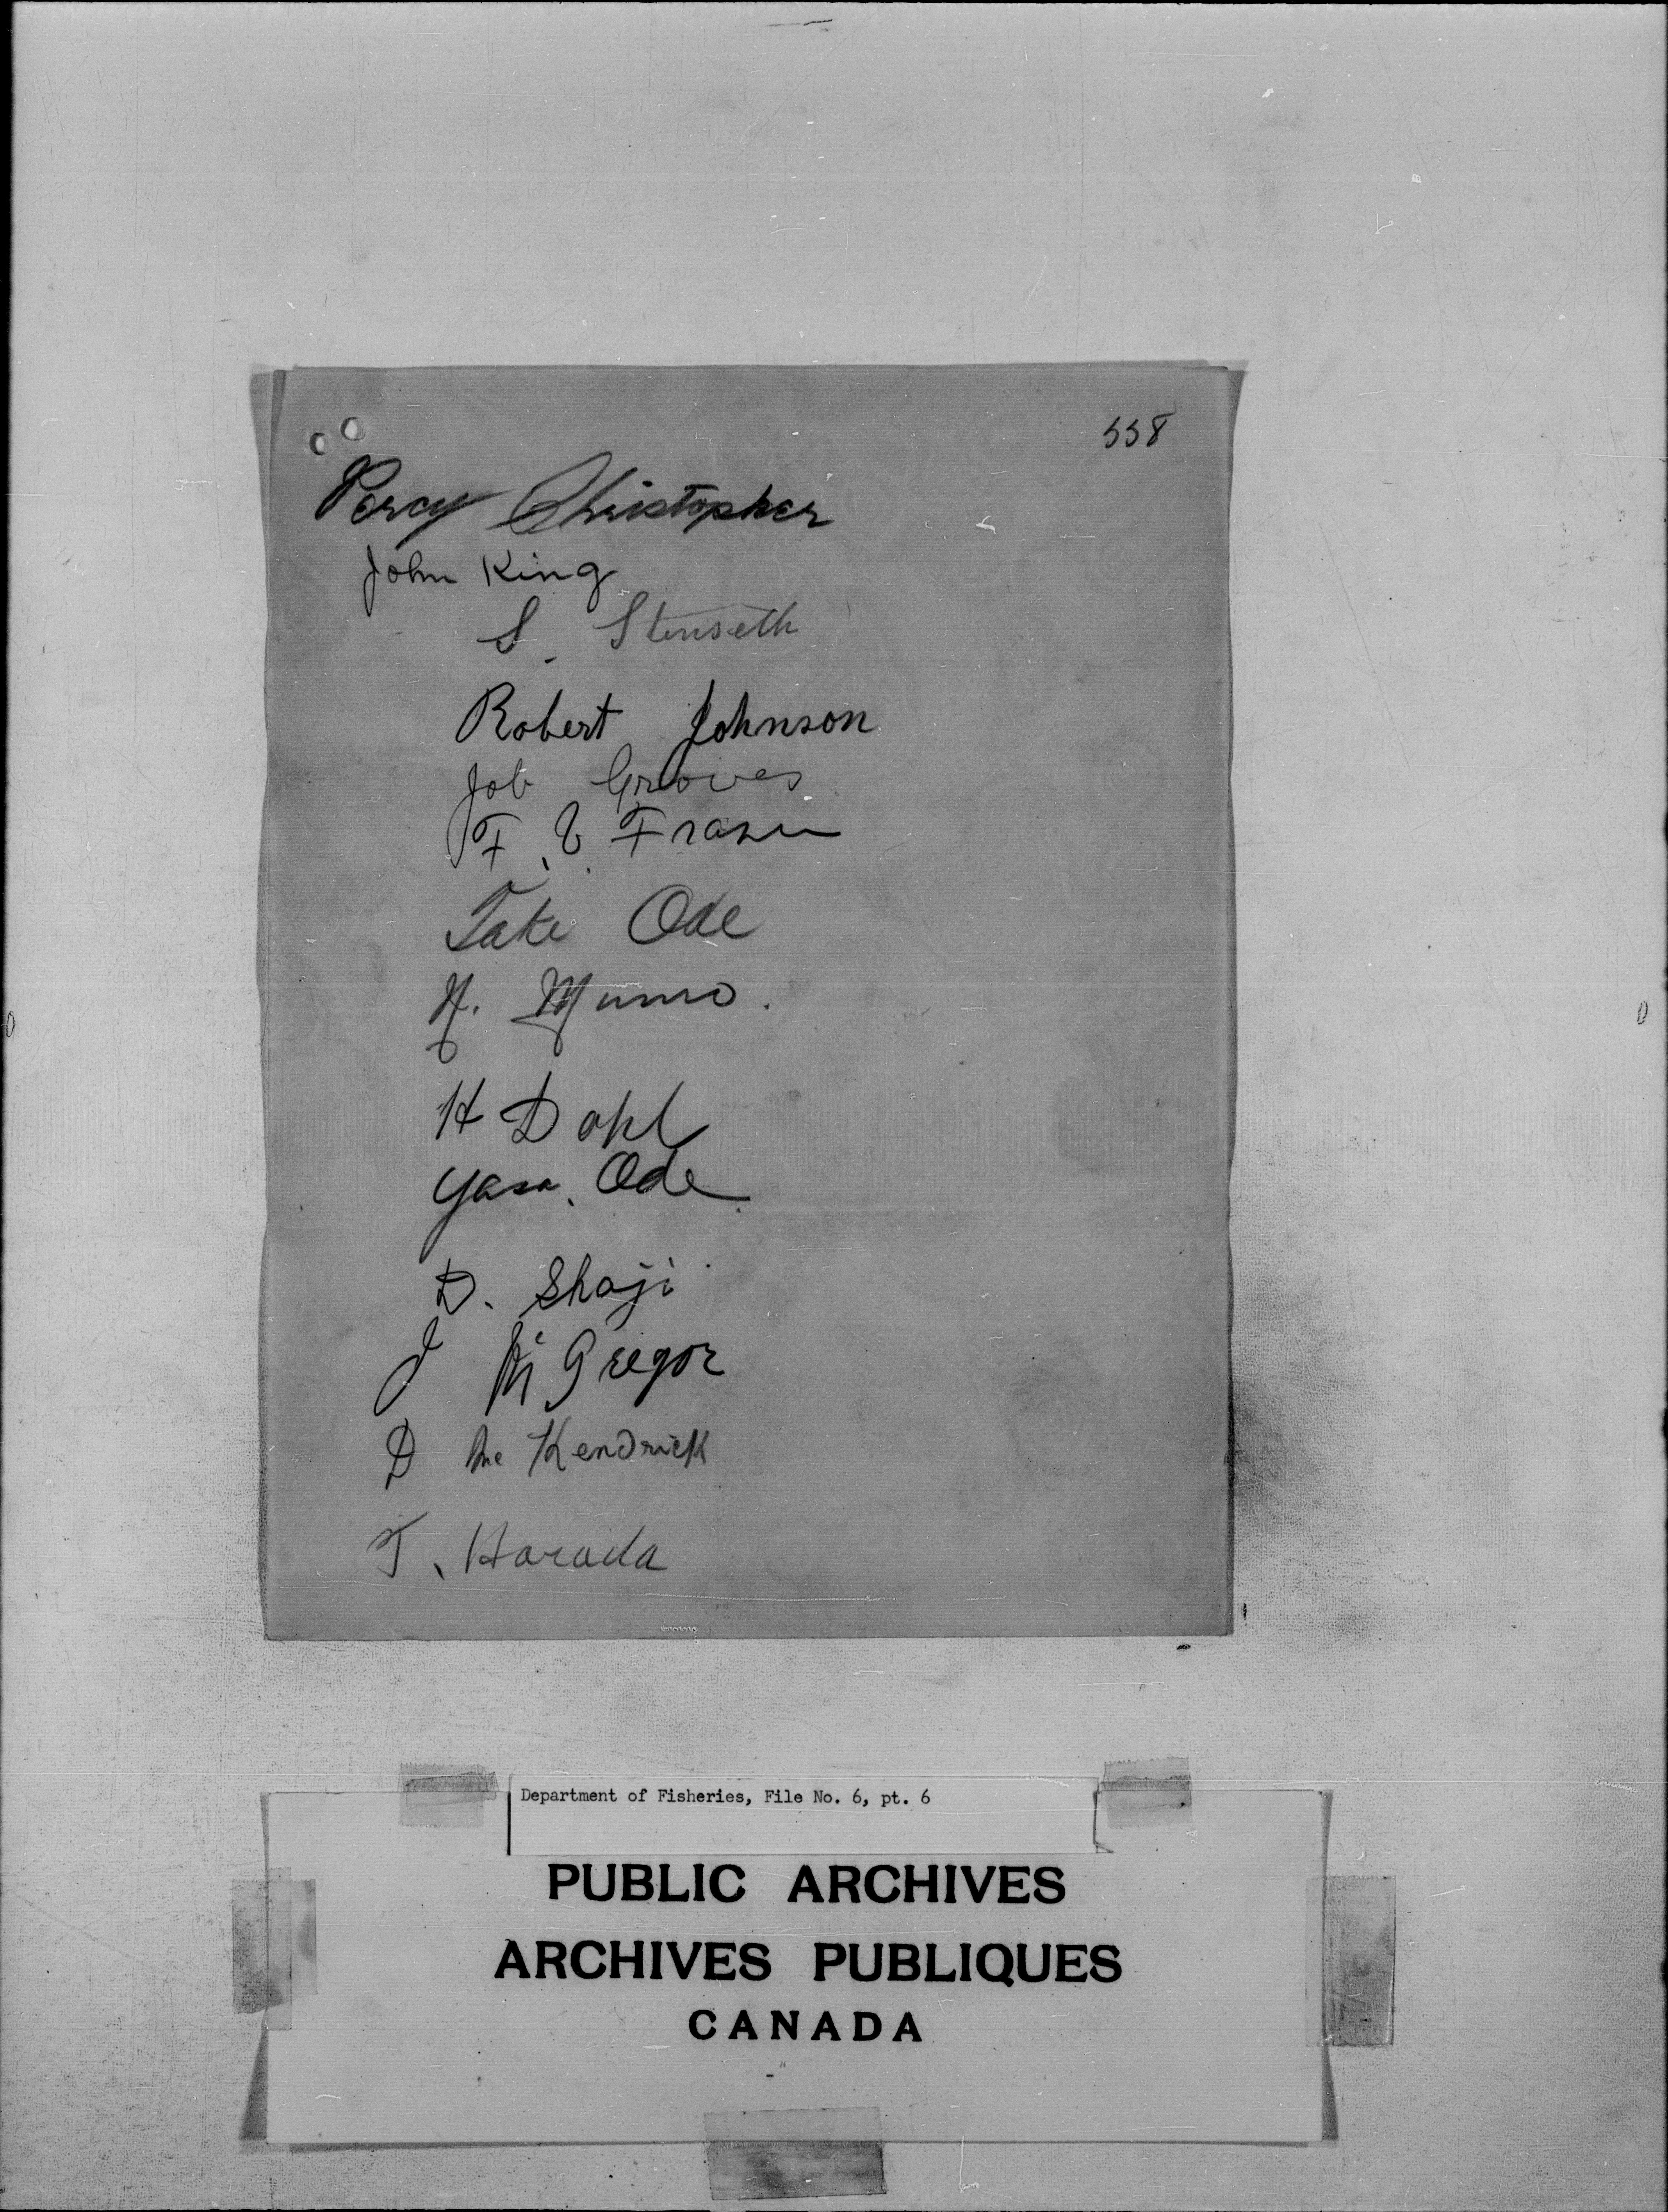 558
Percy Christopher
John King
S. Stenseth
Robert Johnson
Job Groves
F. Fraser
Take Ode
H. Munro.
H Dahl
Yasa. Ode
D. Shoji
J Mc Gregor
D Mc Kendrick
T. Harada
Department of Fisheries, File No. 6, pt. 6
PUBLIC ARCHIVES
ARCHIVES PUBLIQUES
CANADA